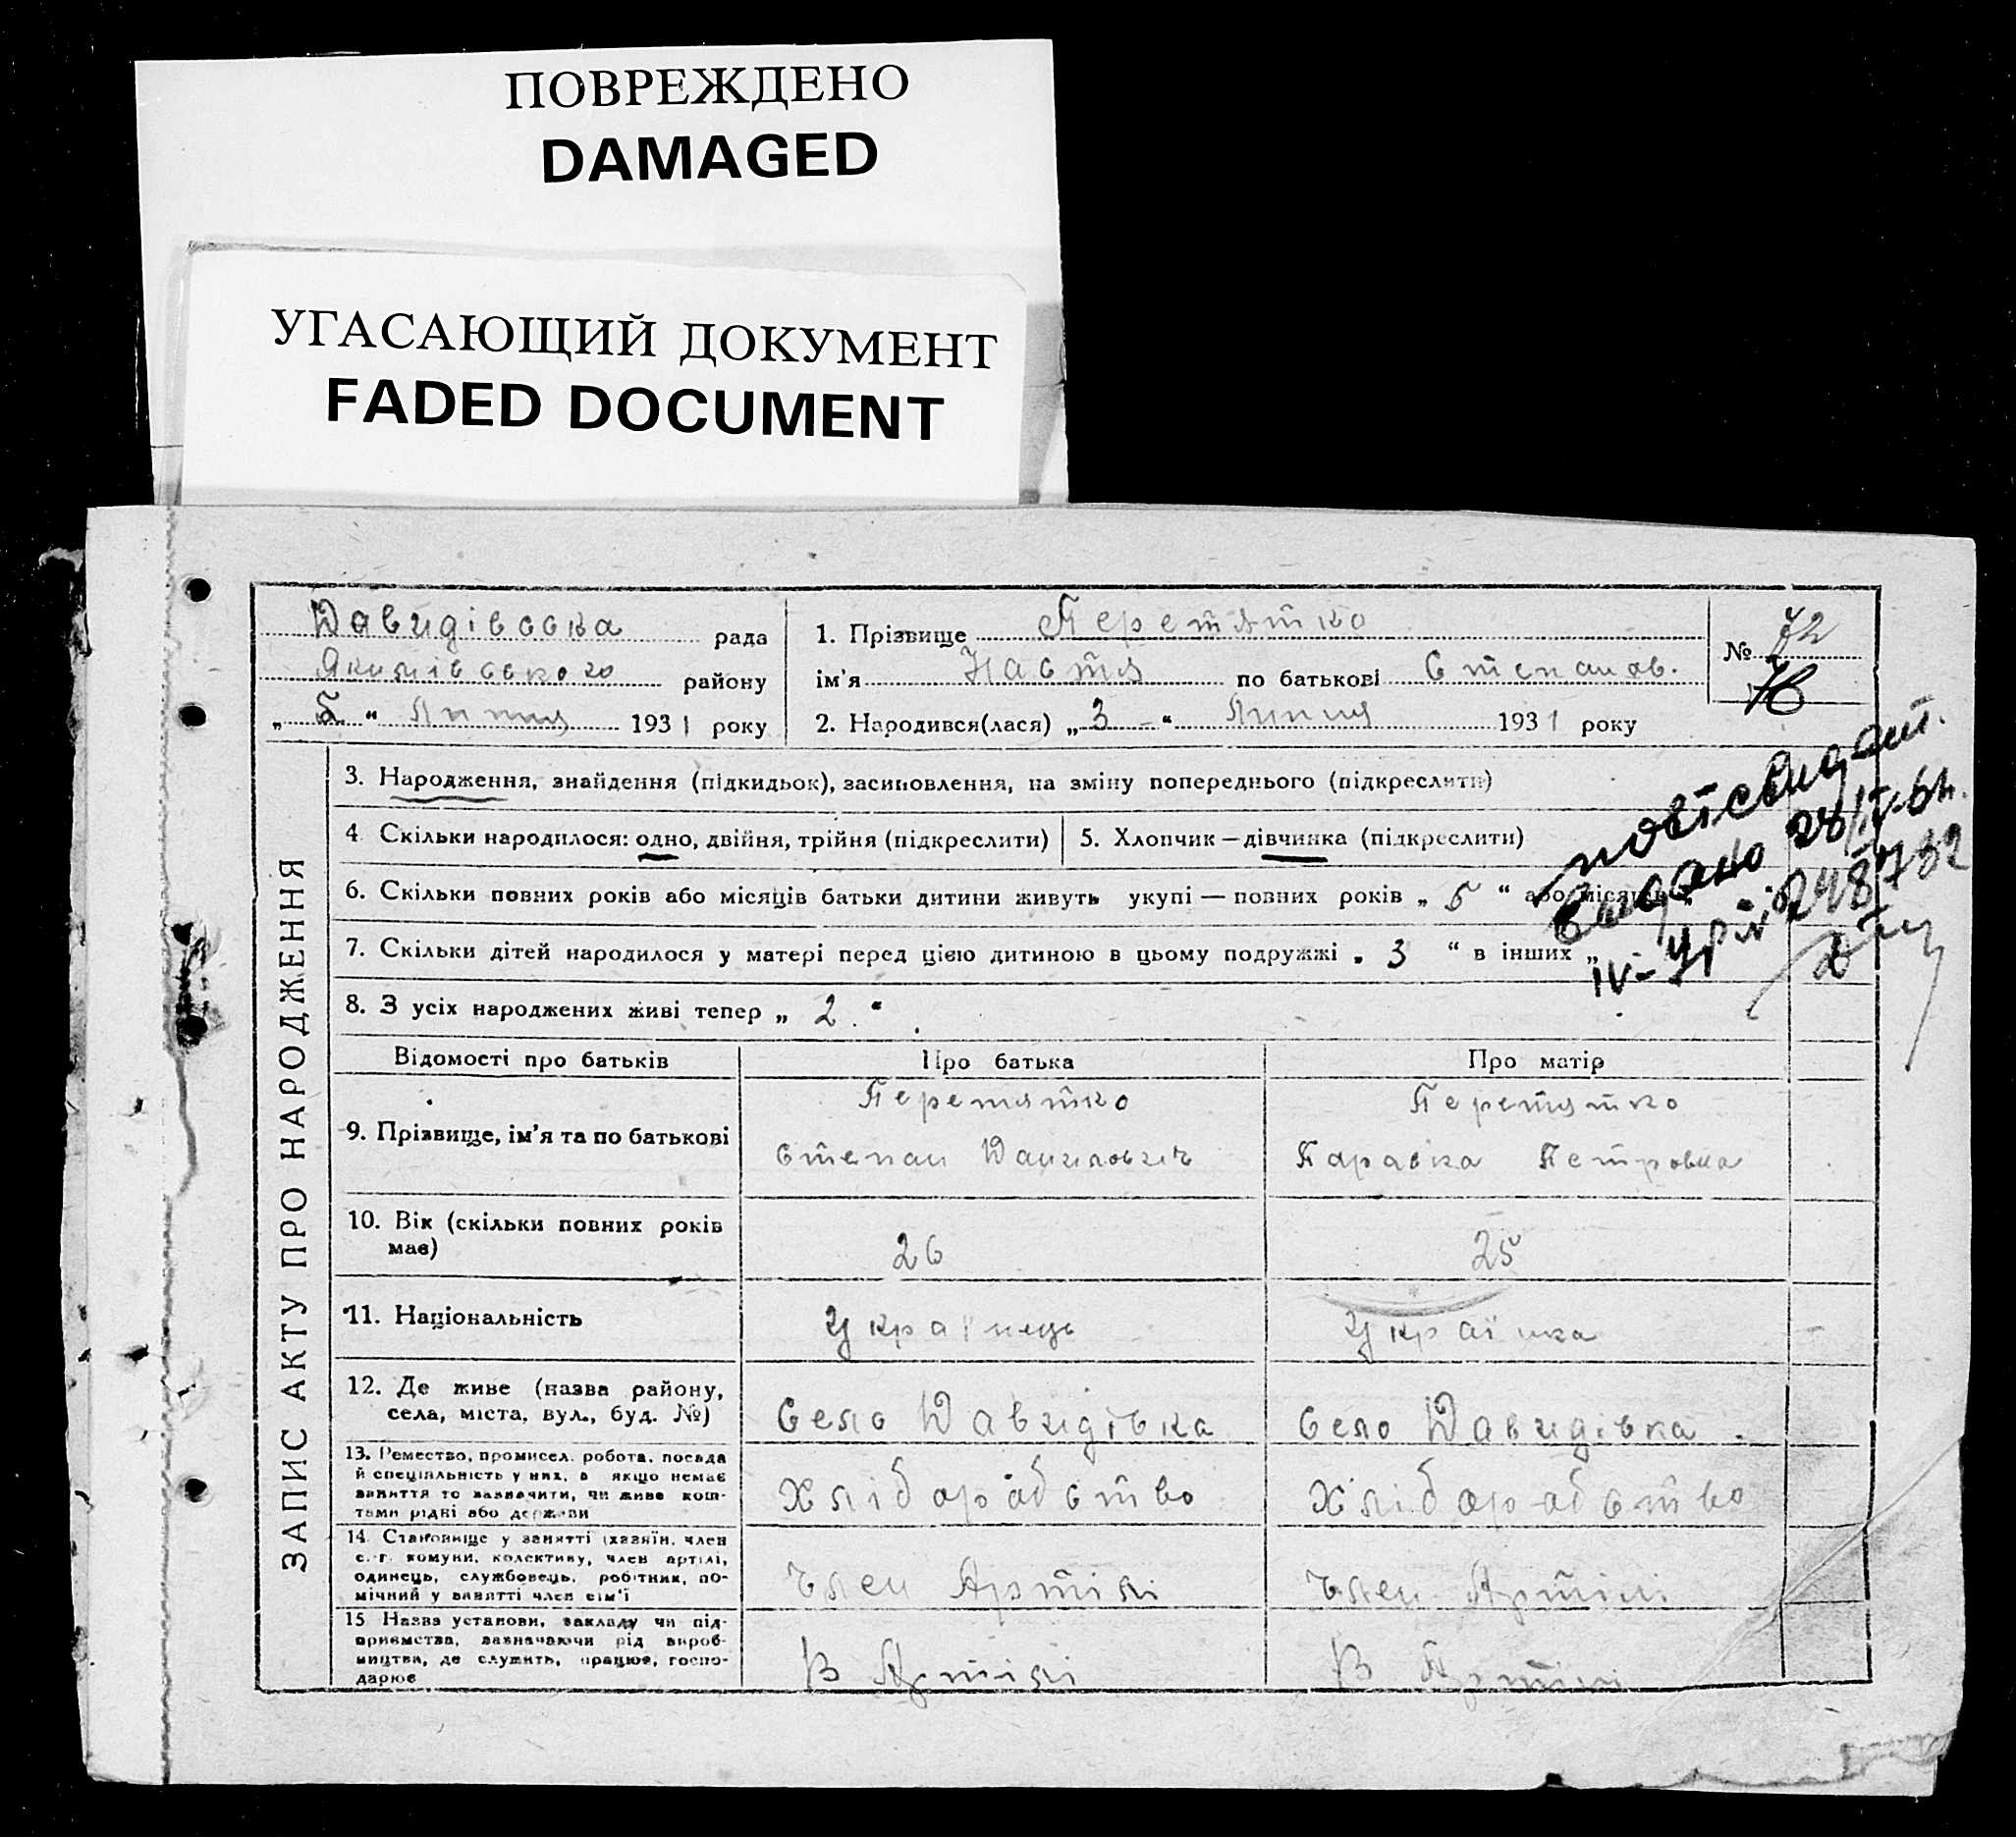 ПОВРЕЖДЕНО
DAMAGED
УГАСАЮЩИЙ ДОКУМЕНТ
FADED DOCUMENT
Давидівська рада
Якимівського району
„ 5 “ Липня 1931 року
1. Прізвище Перетятко
ім'я Настя по батькові Степанов.
2. Народився(лася) „ 3 “ Липня 1931 року
№ 72
ЗАПИС АКТУ ПРО НАРОДЖЕННЯ
3. Народження, знайдення (підкидьок), засиновлення, на зміну попереднього (підкреслити)
4. Скільки народилося: одно, двійня, трійня (підкреслити)
5. Хлопчик — дівчинка (підкреслити)
6. Скільки повних років або місяців батьки дитини живуть укупі — повних років „ 5 “ або місяців
7. Скільки дітей народилося у матері перед цією дитиною в цьому подружжі „ 3 “ в інших „
8. З усіх народжених живі тепер „ 2 “
выдано 28/IV-64.
248732
Відомості про батьків
Про батька
Про матір
9. Прізвище, ім'я та по батькові
Перетятко
Степан Данилович
Перетятко
Параска Петровна
10. Вік (скільки повних років має)
26
25
11. Національність
Українець
Українка
12. Де живе (назва району,
села, міста, вул., буд. №)
Село Давидівка
Село Давидівка.
13. Ремество, промисел, робота, посада
й спеціяльність у них, а якщо немає
заняття то зазначити, чи живе кош-
тами рідні або держави
Хлібарабство
Хлібарабство
14. Становище у занятті (хазяїн, член
с.-г. комуни, колективу, член артілі,
одинець, службовець, робітник, по-
мічний у занятті член сім'ї
Член Артілі
Член Артілі
15. Назва установи, закладу чи під-
приємства, зазначаючи рід вироб-
ництва, де служить, працює, госпо-
дарює
В Артілі
В Артілі